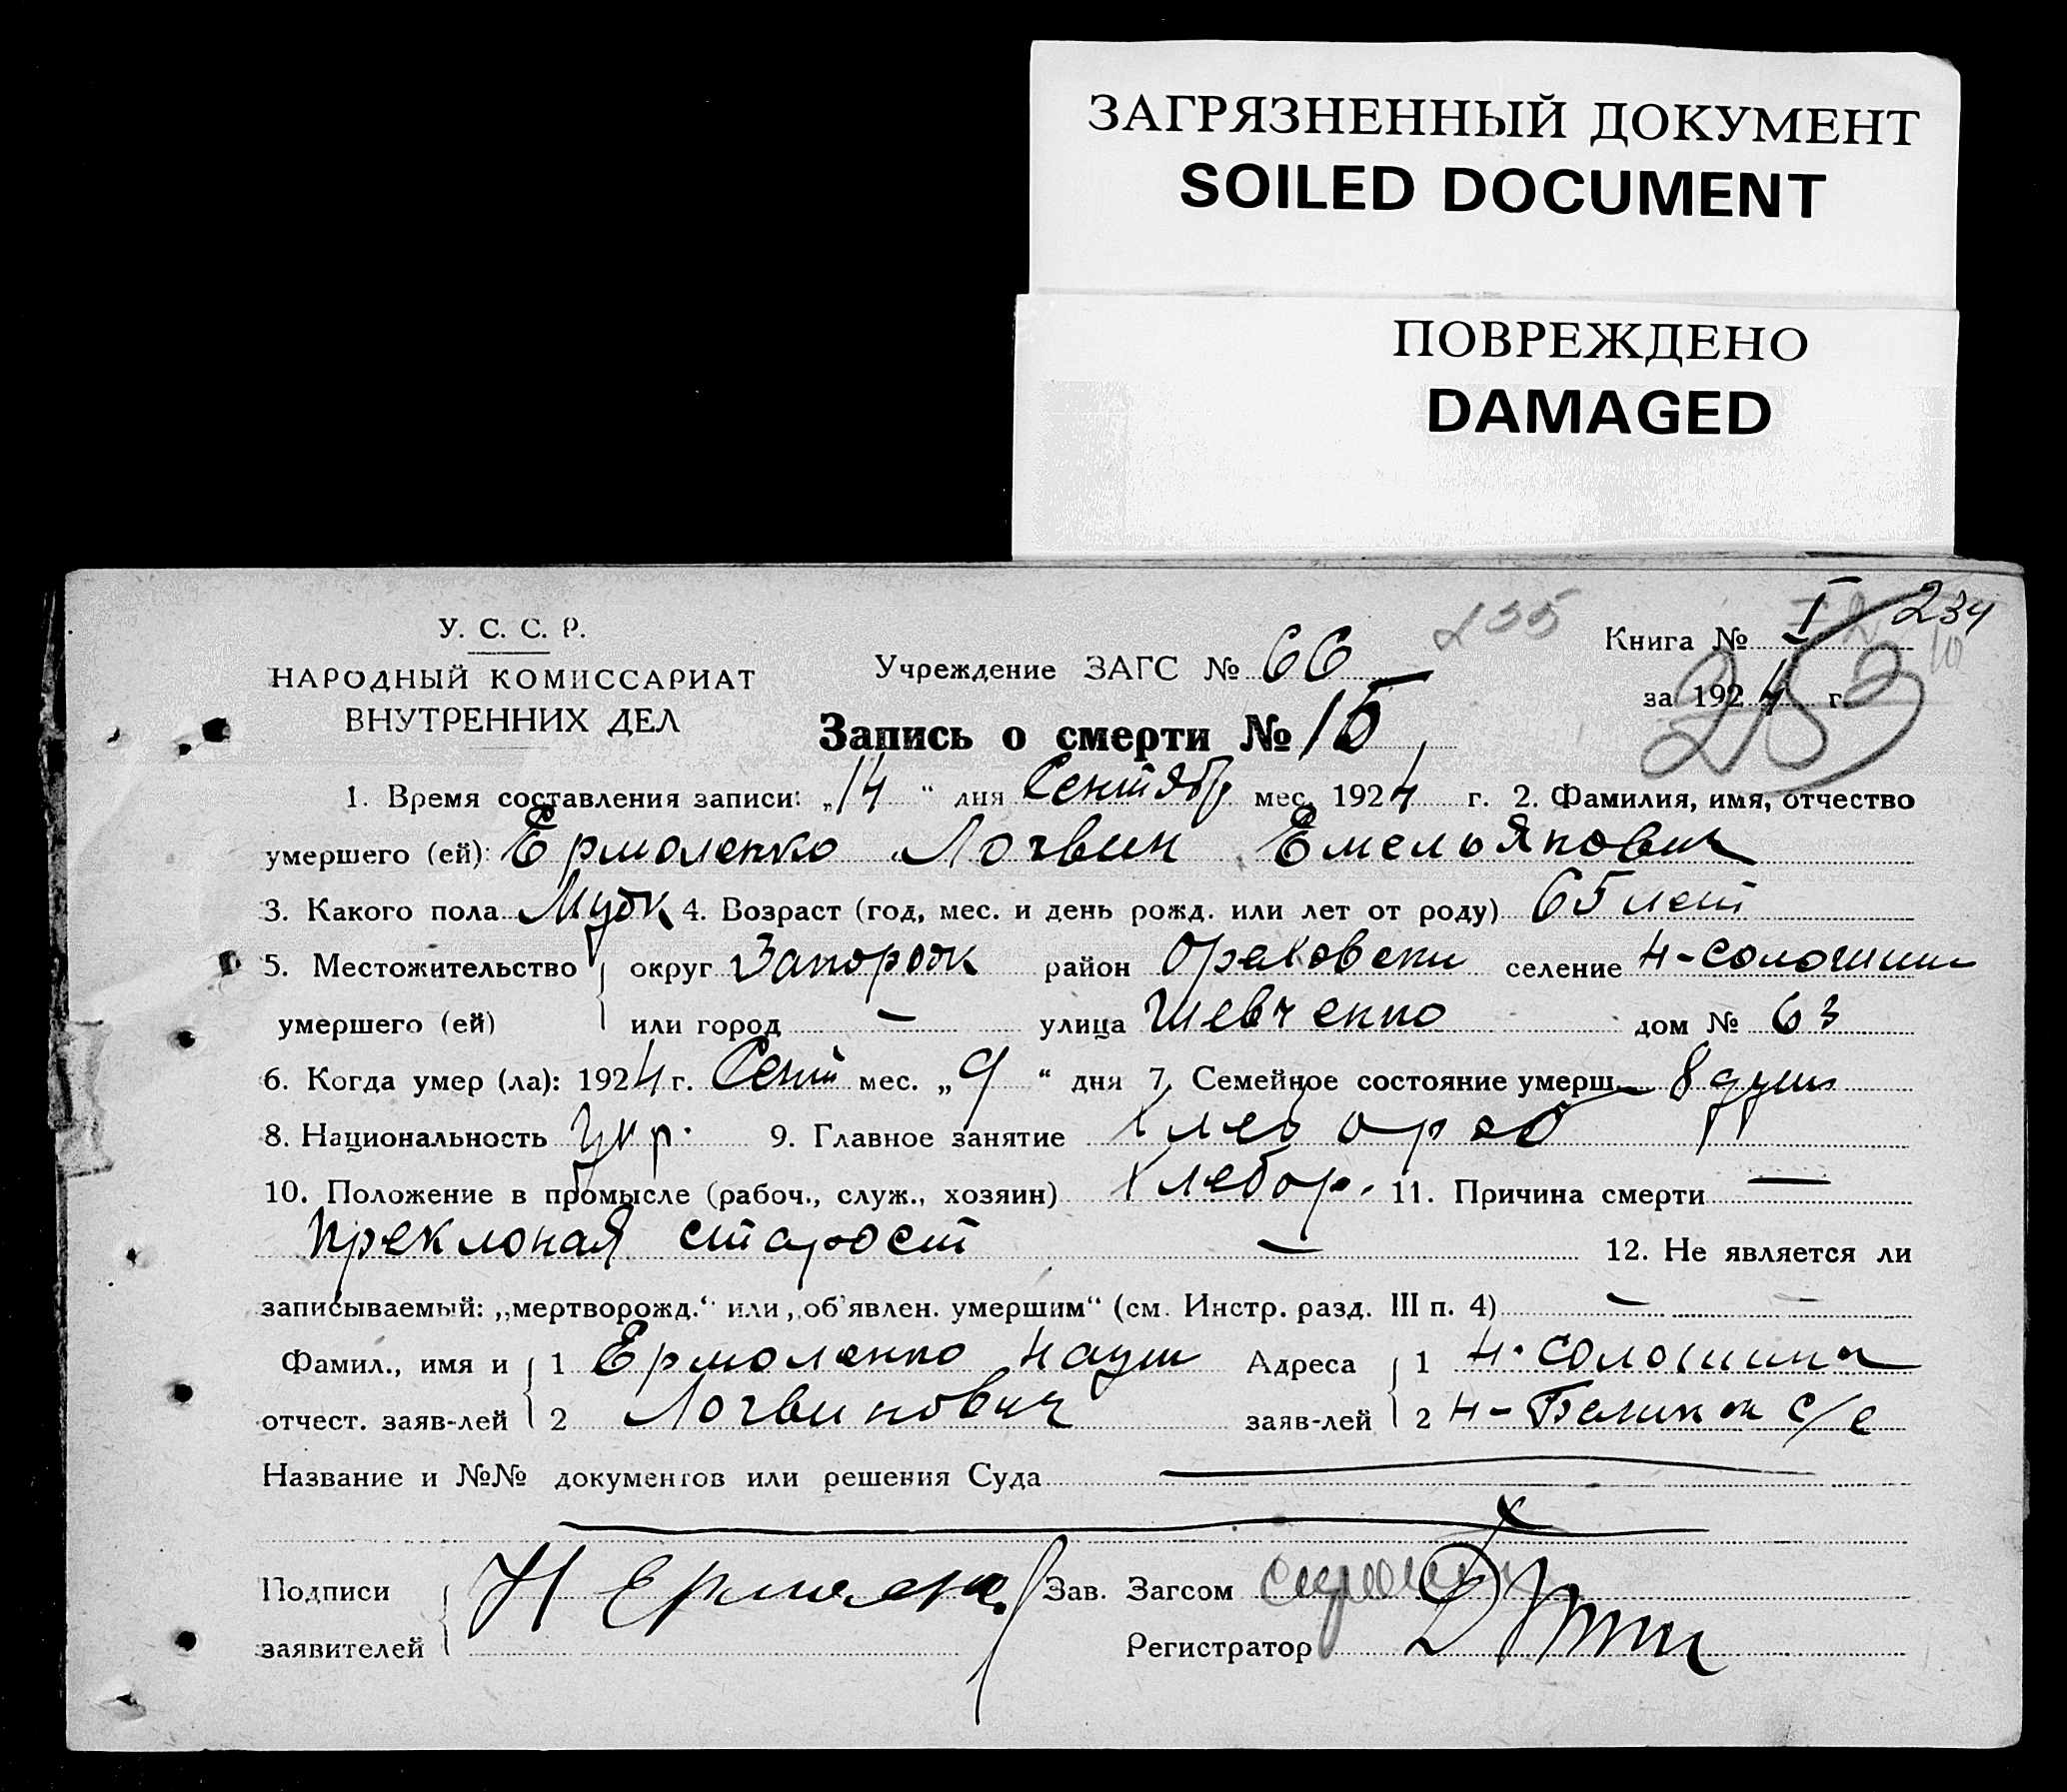 ЗАГРЯЗНЕННЫЙ ДОКУМЕНТ
SOILED DOCUMENT
ПОВРЕЖДЕНО
DAMAGED
У. С. С. Р.
НАРОДНЫЙ КОМИССАРИАТ
ВНУТРЕННИХ ДЕЛ
Учреждение ЗАГС № 66
235
Книга № I 234
за 1924 г. 252
Запись о смерти № 15
1. Время составления записи: „14 “ дня Сентябр мес. 1924 г. 2. Фамилия, имя, отчество
умершего (ей): Ермоленко Логвин Емельянович
3. Какого пола Мужк 4. Возраст (год, мес. и день рожд. или лет от роду) 65 лет
5. Местожительство округ Запорожк район Ореховски селение Н-Солошин
умершего (ей) или город — улица Шевченко дом № 63
6. Когда умер (ла): 1924 г. Сент мес. „9 “ дня 7. Семейное состояние умерш. 8 душ
8. Национальность Укр. 9. Главное занятие Хлебороб
10. Положение в промысле (рабоч., служ., хозяин) Хлебор. 11. Причина смерти —
Преклоная старост — 12. Не является ли
записываемый: „мертворожд.“ или „об'явлен. умершим“ (см. Инстр. разд. III п. 4) —
Фамил., имя и 1 Ермоленко Наум Адреса 1 Н-Солошина
отчест. заяв-лей 2 Логвинович заяв-лей 2 Н- с/с
Название и №№ документов или решения Суда
Подписи Н Ермолен Зав. Загсом
заявителей Регистратор